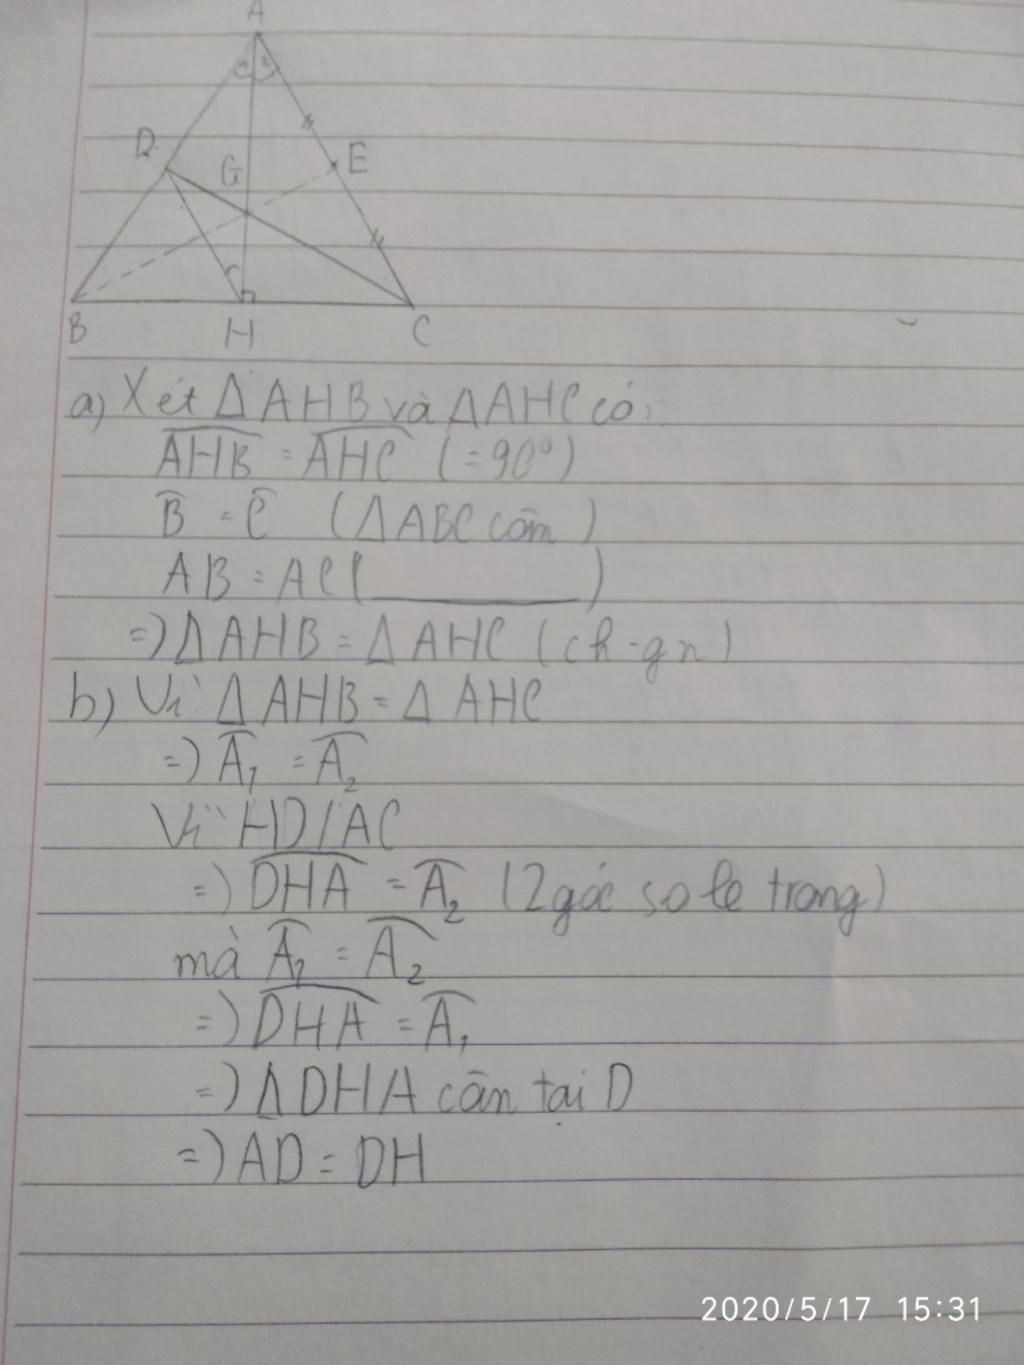 A
D
G
E
B
H
C
a) Xét ΔAHB và ΔAHC có:
AHB = AHC (= 90°)
B = C (ΔABC cân)
AB = AC (________)
=) ΔAHB = ΔAHC (ch-gn)
b) Vì ΔAHB = ΔAHC
=) A₁ = A₂
Vì HD//AC
=) DHA = A₂ (2 góc so le trong)
mà A₁ = A₂
=) DHA = A₁
=) ΔDHA cân tại D
=) AD = DH
2020/5/17 15:31